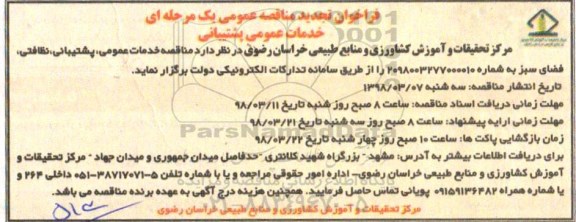 فراخوان تجدید مناقصه عمومی یک مرحله ای
خدمات عمومی پشتیبانی
مرکز تحقیقات و آموزش کشاورزی و منابع طبیعی خراسان رضوی در نظر دارد مناقصه خدمات عمومی، پشتیبانی، نظافتی،
فضای سبز به شماره ۲۰۹۸۰۰۳۲۷۷۰۰۰۰۱۰ را از طریق سامانه تدارکات الکترونیکی دولت برگزار نماید.
تاریخ انتشار مناقصه: سه شنبه ۱۳۹۸/۰۳/۰۷
مهلت زمانی دریافت اسناد مناقصه: ساعت ۸ صبح روز شنبه تاریخ ۹۸/۰۳/۱۱
مهلت زمانی ارایه پیشنهاد: ساعت ۸ صبح روز سه شنبه تاریخ ۹۸/۰۳/۲۱
زمان بازگشایی پاکت ها: ساعت ۱۰ صبح روز چهار شنبه تاریخ ۹۸/۰۳/۲۲
برای دریافت اطلاعات بیشتر به آدرس: مشهد - بزرگراه شهید کلانتری - حدفاصل میدان جمهوری و میدان جهاد - مرکز تحقیقات و
آموزش کشاورزی و منابع طبیعی خراسان رضوی - اداره امور حقوقی مراجعه و یا با شماره تلفن ۵-۰۵۱-۳۸۷۱۷۰۷۱ داخلی ۲۶۴ و
یا شماره همراه ۰۹۱۵۹۱۳۶۴۸۲ پویانی تماس حاصل فرمایید. همچنین هزینه درج آگهی به عهده برنده مناقصه می باشد.
مرکز تحقیقات و آموزش کشاورزی و منابع طبیعی خراسان رضوی
ParsNamadData